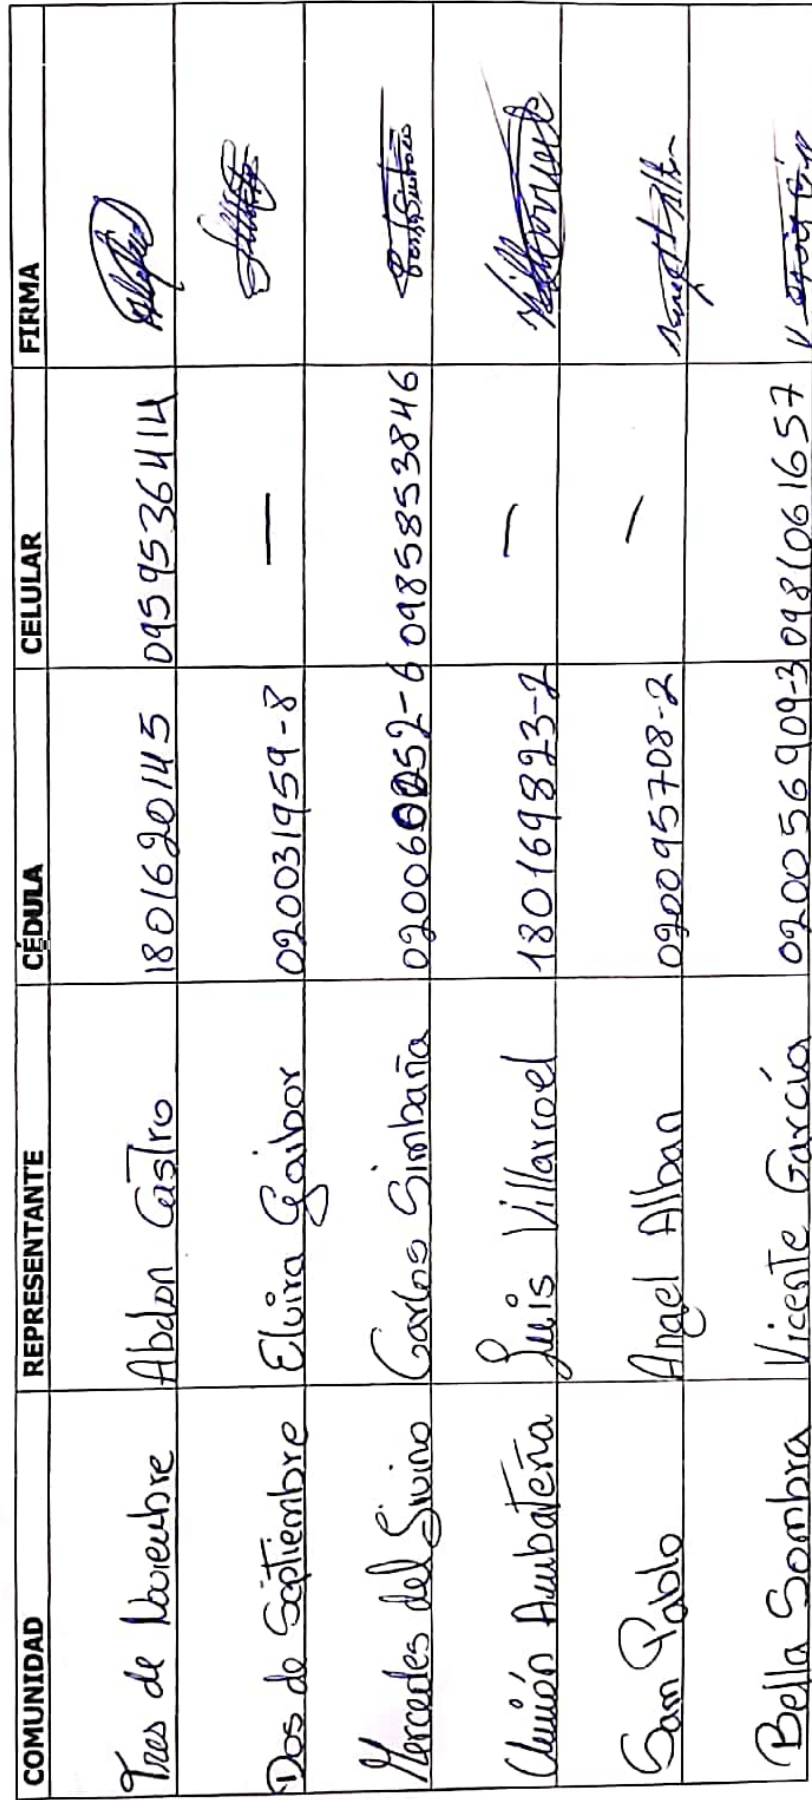 COMUNIDAD REPRESENTANTE CÉDULA CELULAR FIRMA
Tres de Noviembre Abdon Castro 1801620145 0959536414
Dos de Septiembre Elvira Gaibor 020031959-8 —
Mercedes del Sivino Carlos Simbaña 020060252-6 0985853846
Unión Ambateña Luis Villarroel 180169823-2 —
San Pablo Angel Alban 020095708-2 —
Bella Sombra Vicente García 020056909-3 0981061657